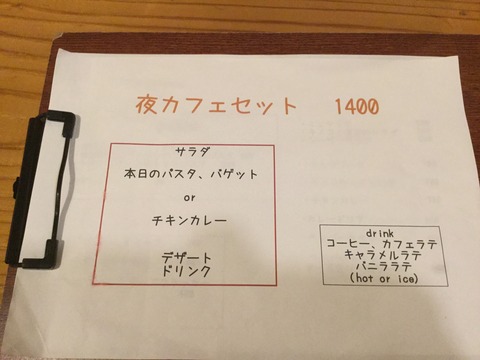 夜カフェセット 1400
サラダ
本日のパスタ、バゲット
or
チキンカレー
デザート
ドリンク
drink
コーヒー、カフェラテ
キャラメルラテ
バニララテ
(hot or ice)